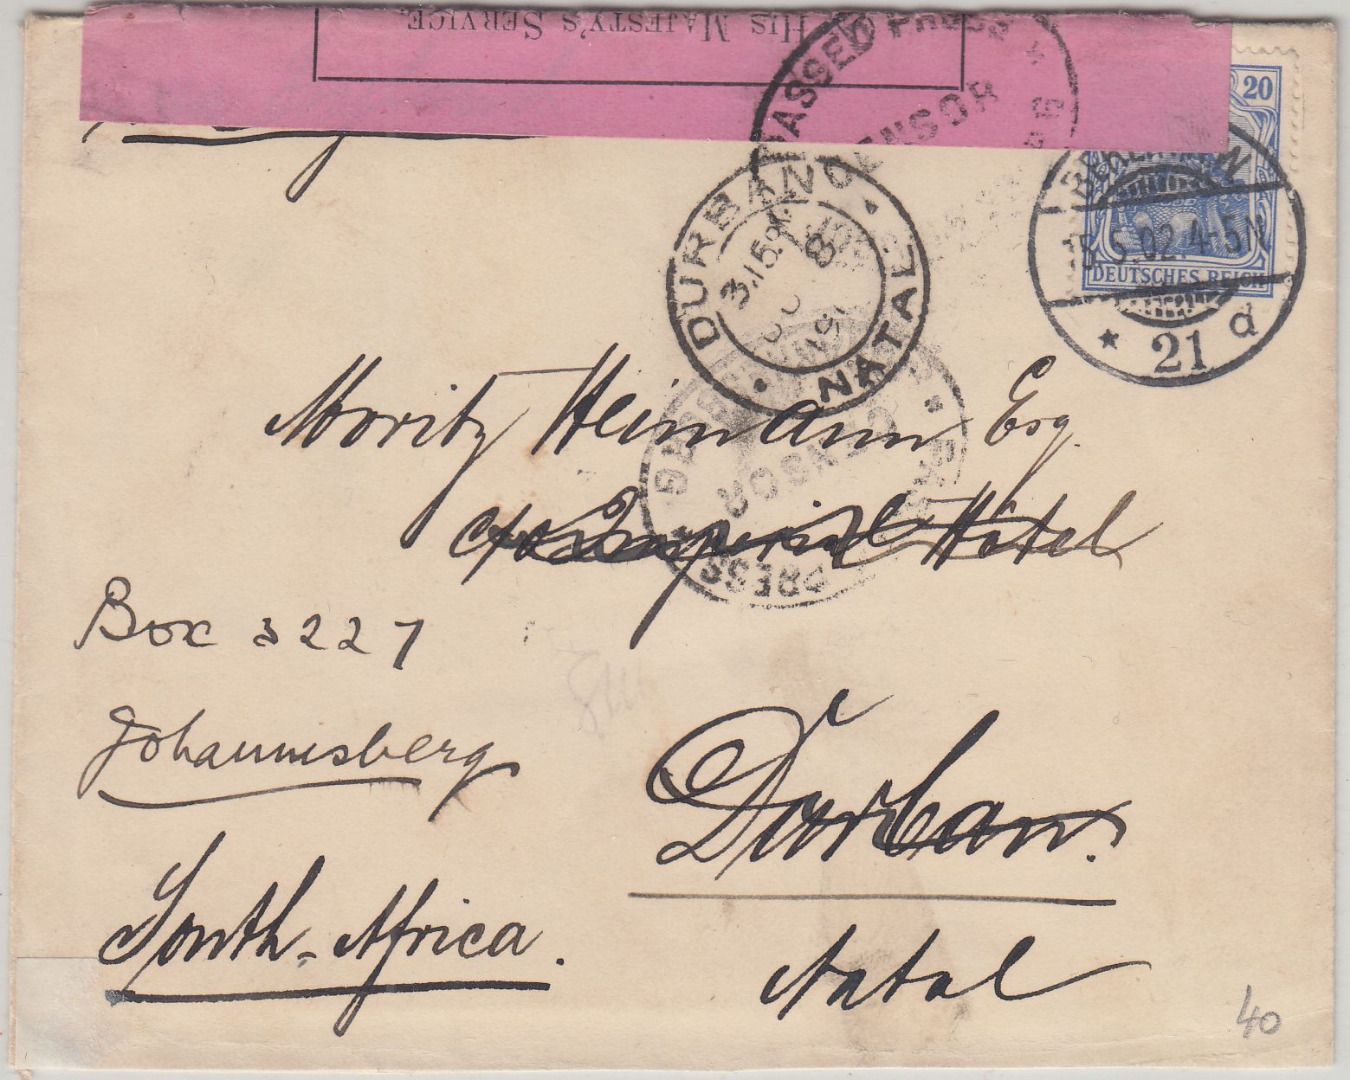 HIS MAJESTY'S SERVICE.
PASSED PRESS CENSOR
20
DEUTSCHES REICH
BERLIN
5.02. 4-5N
* 21 d
DURBAN
NATAL
Moritz Heimann Esq.
c/o Imperial Hôtel
PRESS CENSOR
Box 3227
Johannesberg
South-Africa.
Durban.
Natal
40